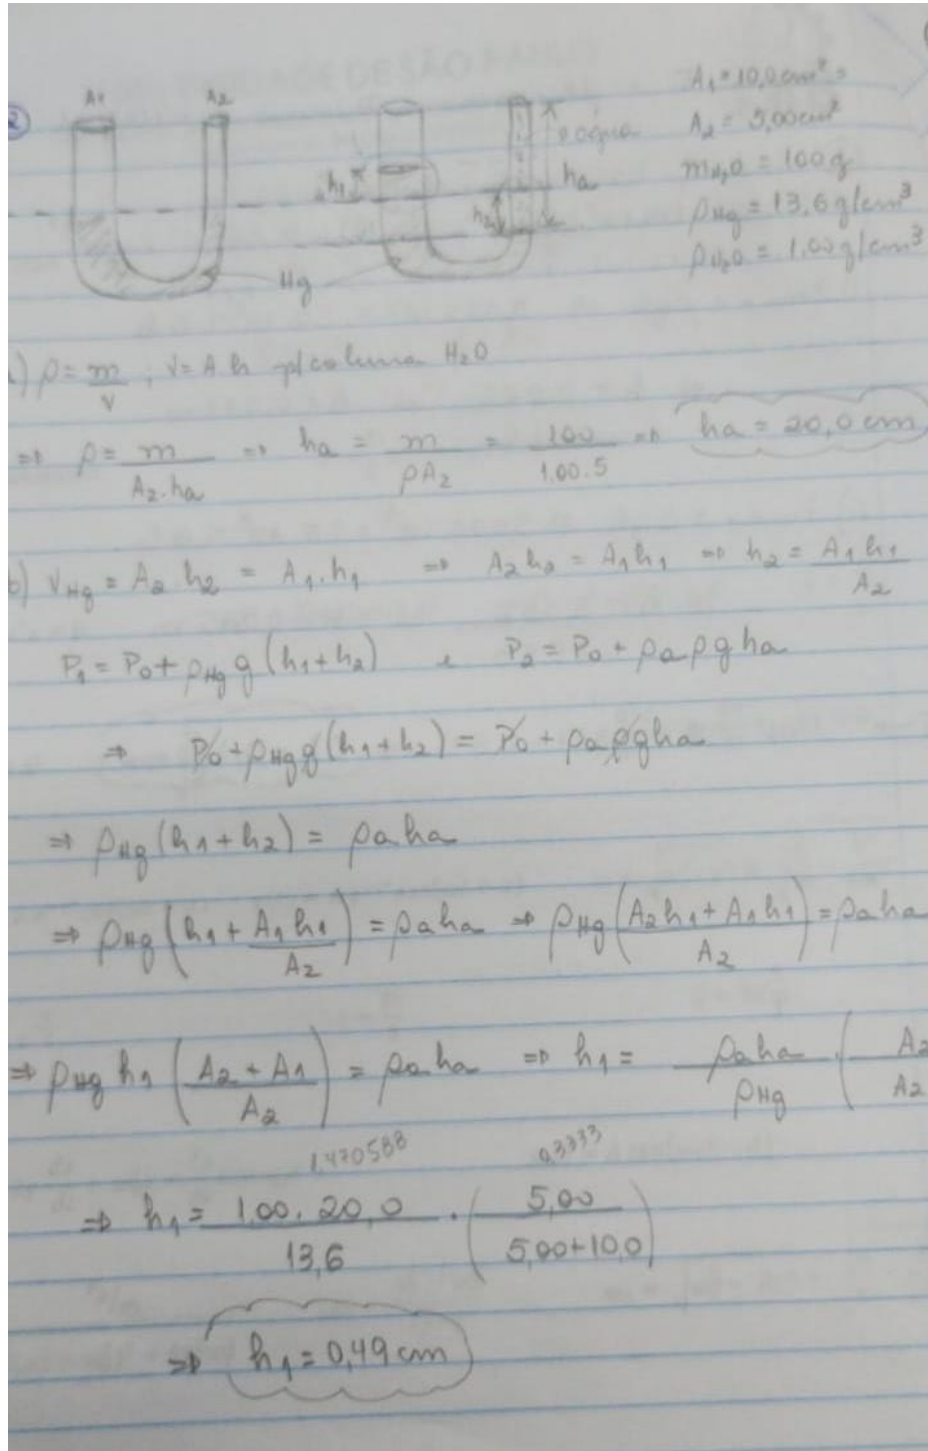 2
A1 A2
A₁ = 10,0 cm²
A₂ = 5,00 cm²
m_H₂O = 100 g
ρ_Hg = 13,6 g/cm³
ρ_H₂O = 1,00 g/cm³
h₁ água ha
h₂
Hg
) ρ = m/V ; V = A h p/ coluna H₂O
⇒ ρ = m/(A₂.ha) ⇒ ha = m/(ρA₂) = 100/(1,00.5) ⇒ ha = 20,0 cm
b) V_Hg = A₂ h₂ = A₁.h₁ ⇒ A₂h₂ = A₁h₁ ⇒ h₂ = A₁h₁/A₂
P₁ = P₀ + ρ_Hg g (h₁ + h₂) e P₂ = P₀ + ρa ρg ha
⇒ P₀ + ρ_Hg g (h₁ + h₂) = P₀ + ρa ρg ha
⇒ ρ_Hg (h₁ + h₂) = ρa ha
⇒ ρ_Hg (h₁ + A₁h₁/A₂) = ρa ha ⇒ ρ_Hg ((A₂h₁ + A₁h₁)/A₂) = ρa ha
⇒ ρ_Hg h₁ ((A₂ + A₁)/A₂) = ρa ha ⇒ h₁ = ρa ha/ρ_Hg . (A₂/A₂
1,470588 0,3333
⇒ h₁ = 1,00.20,0/13,6 . (5,00/(5,00+10,0))
⇒ h₁ = 0,49 cm